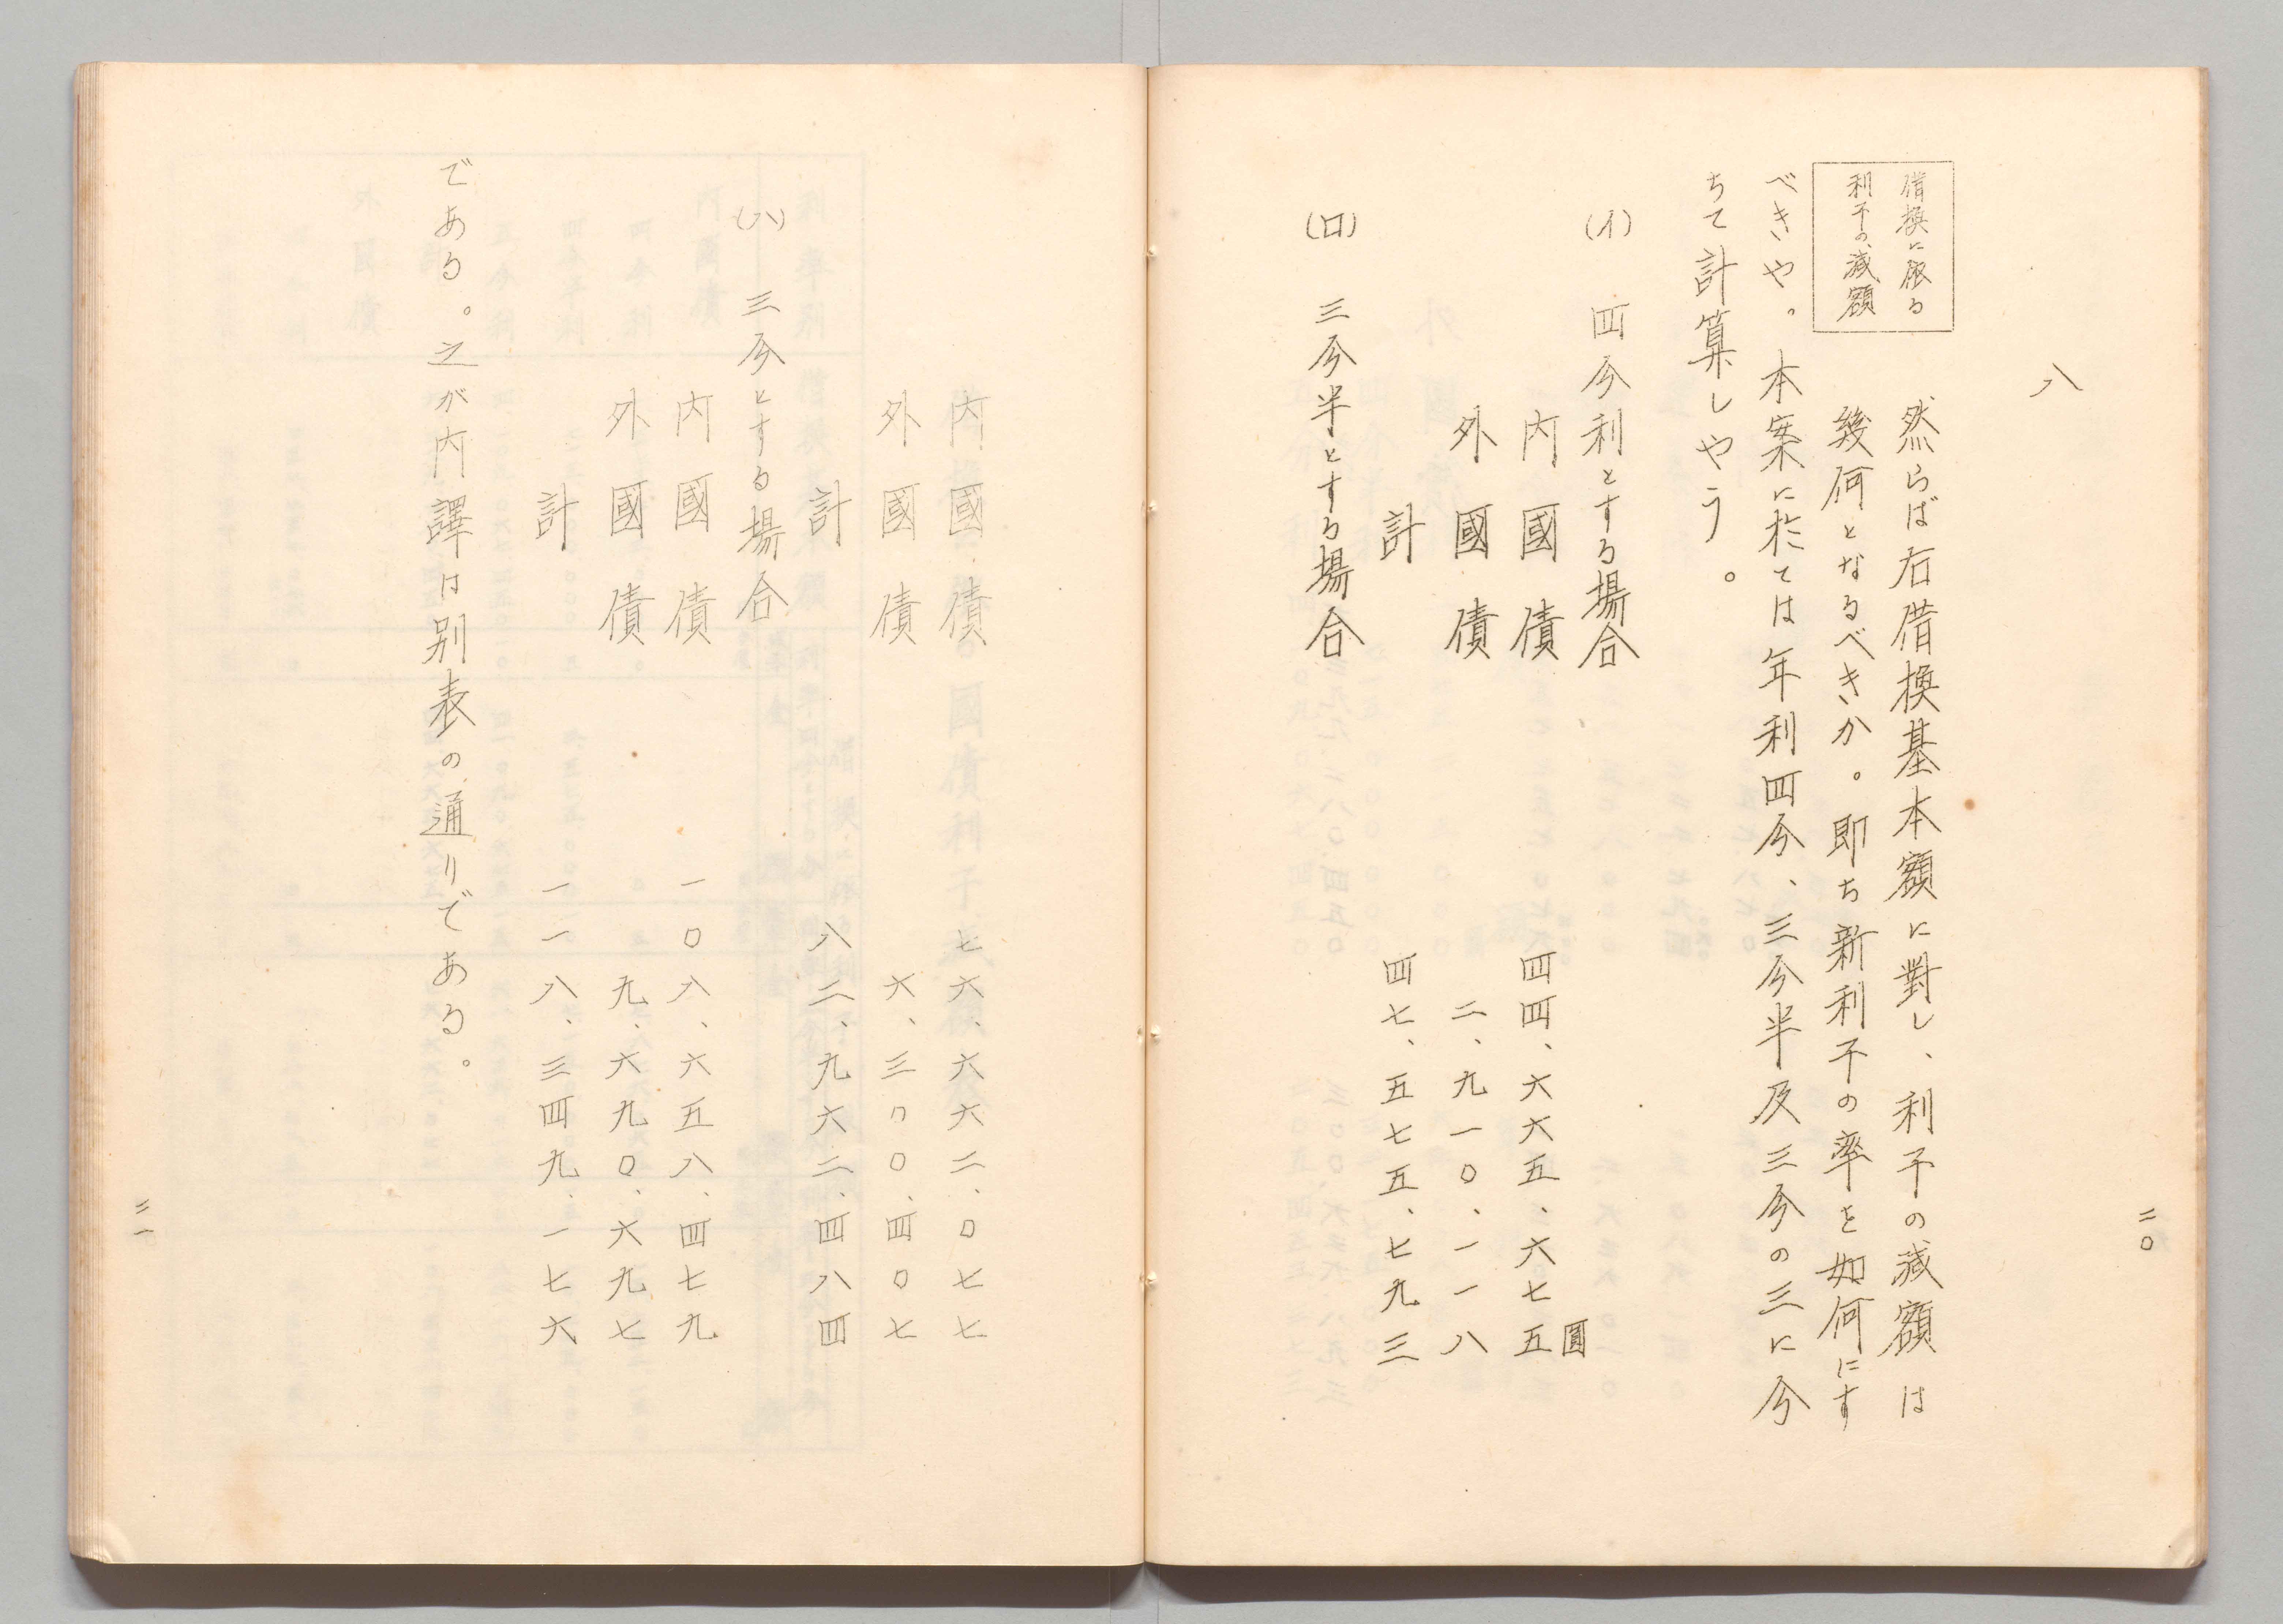 二〇
八
借換に依る
利子の減額
然らば右借換基本額に對し、利子の減額は
幾何となるべきか。即ち新利子の率を如何にす
べきや。本案に於ては年利四分、三分半及三分の三に分
ちて計算しやう。
(イ) 四分利とする場合
内國債 四四、六六五、六七五圓
外國債 二、九一〇、一一八
計 四七、五七五、七九三
(ロ) 三分半とする場合
内國債 七六、六六二、〇七七
外國債 六、三〇〇、四〇七
計 八二、九六二、四八四
(ハ) 三分とする場合
内國債 一〇八、六五八、四七九
外國債 九、六九〇、六九七
計 一一八、三四九、一七六
である。之が内譯は別表の通りである。
二一